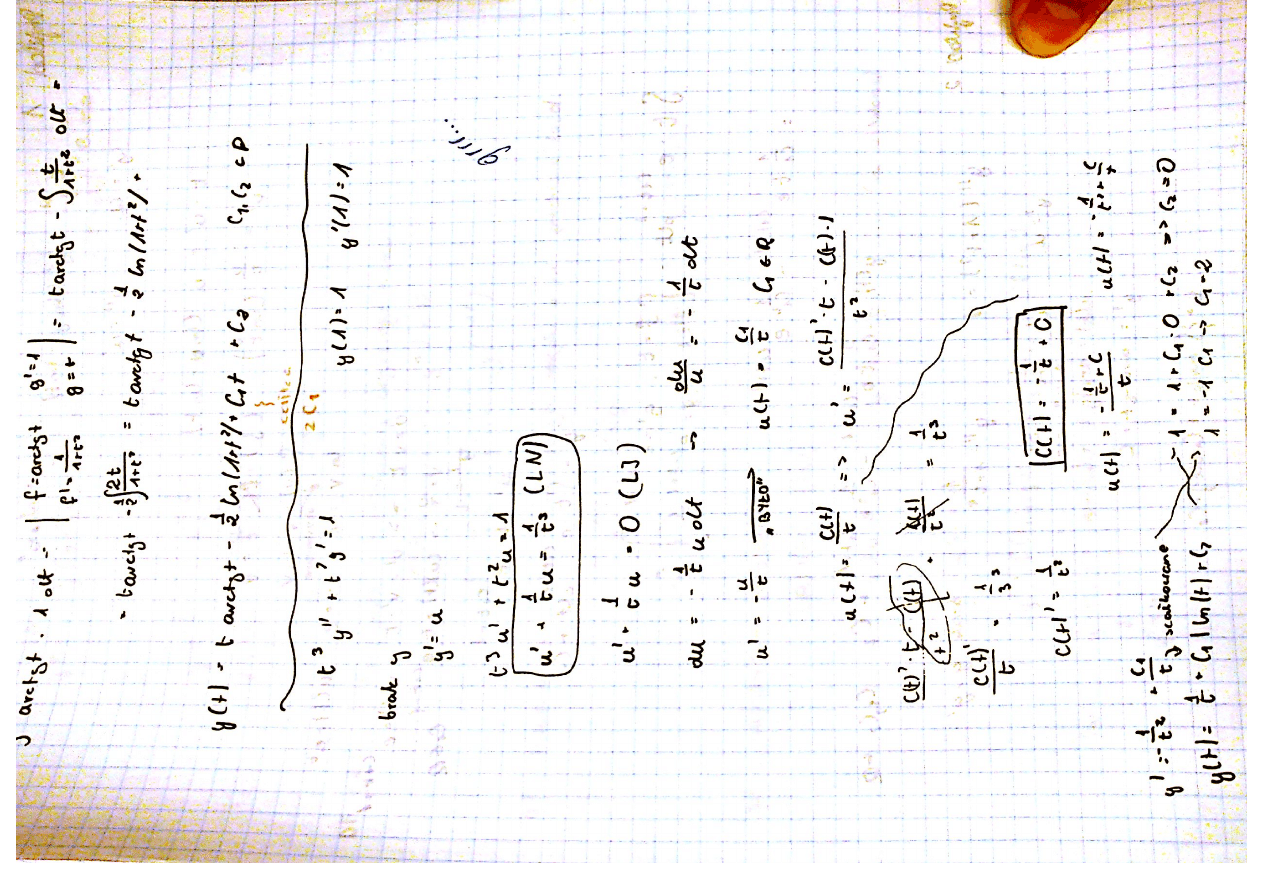 ∫ arctgt · 1 dt = | f = arctgt g' = 1 | = tarctgt - ∫ t/(1+t²) dt =
f' = 1/(1+t²) g = t
= tarctgt - 1/2 ∫ 2t/(1+t²) = tarctgt - 1/2 ln|1+t²| +
y(t) = t arctgt - 1/2 ln|1+t²| + C₁t + C₂ C₁,C₂ ∈ R
2 C₁
t³ y'' + t² y' = 1 y(1) = 1 y'(1) = 1
grrr...
brak y
y' = u
t³ u' + t² u = 1
u' + 1/t u = 1/t³ (LN)
u' + 1/t u = 0 (LJ)
du = - 1/t u dt → du/u = - 1/t dt
u' = - u/t "BYŁO" u(t) = C₁/t C₁ ∈ R
u(t) = C(t)/t => u' = (C(t)' · t - C(t) · 1)/t²
(C(t)' · t - C(t))/t² + C(t)/t² = 1/t³
C(t)'/t = 1/t³
C(t)' = 1/t²
C(t) = - 1/t + C
u(t) = (- 1/t + C)/t u(t) = - 1/t² + C/t
y' = - 1/t² + C₁/t → scałkowane 1 = 1 + C₁ · 0 + C₂ => C₂ = 0
y(t) = 1/t + C₁ ln|t| + C₂ 1 = -1 C₁ → C₁ = 2